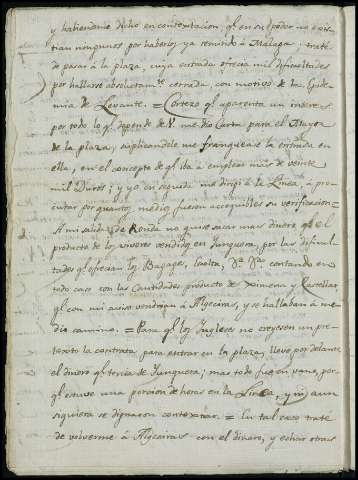 y habiendome dicho en contextacion, qᵉ en su poder no exis-
tian ningunos por haberlos ya remitido à Malaga, traté
de pasar à la plaza, cuya entrada ofrecia mil dificultades
por hallarse absolutamᵗᵉ cerrada, con motivo de la Epide-
mia de Levante. = Cortezo qᵉ aparenta un interes
por todo lo qᵉ depende de V. me dio Carta para el Mayor
de la plaza, suplicandole me franquease la entrada en
ella, en el concepto de qᵉ iba à emplear mas de veinte
mil Duros; y yo en seguida me dirigí à la Linea, à pro-
curar por quantos medios fueron accequibles su verificacion =
A mi salida de Ronda no quise sacar mas dinero qᵉ el
producto de los viveres vendidos en Junquera, por las dificul-
tades qᵉ ofrecian los Bagages, Escolta, &ᵃ &ᵃ contando en
todo caso con las Cantidades producto de Ximena y Castellar,
qᵉ con mi aviso vendrian à Algeciras, y se hallaban à me-
dio camino. = Para qᵉ los Ingleses no creyesen un pre-
texto la contrata para entrar en la plaza, llevé por delante
el dinero qᵉ traia de Junquera; mas todo fue en vano, por-
qᵉ estuve una porcion de horas en la Linea, y ni aun
siquiera se dignaron contextar. = En tal caso traté
de volverme à Algeciras con el dinero, y echar otras